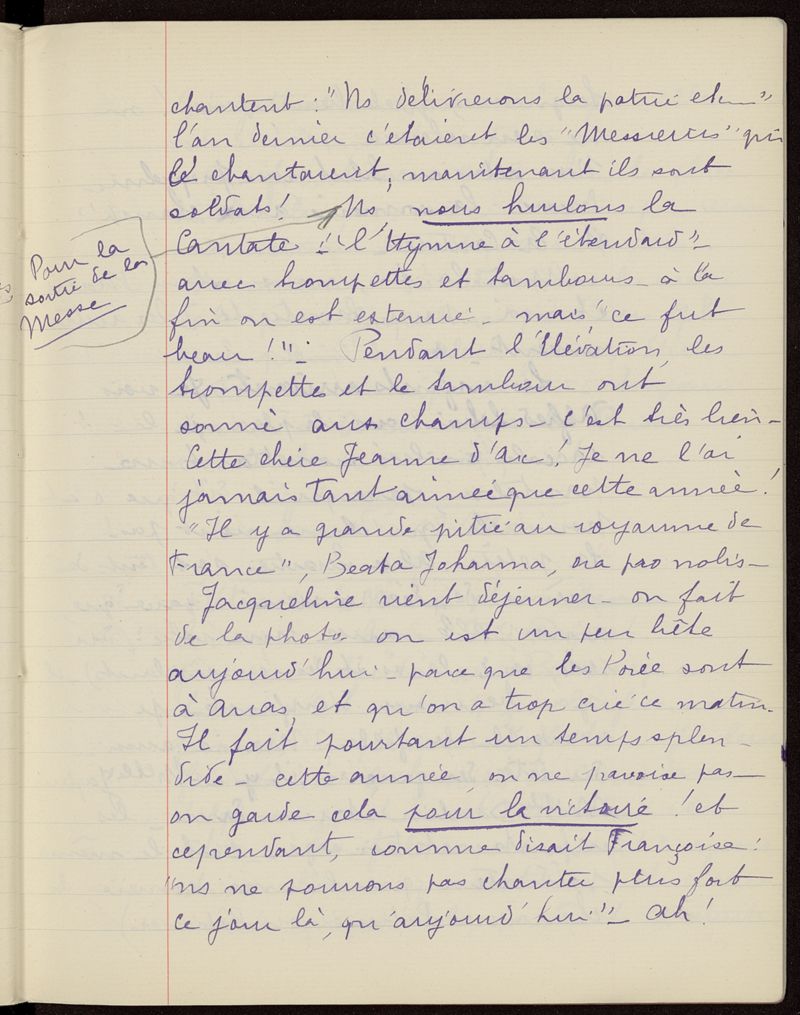 chantent : "Ns délivrerons la patrie etc—"
l'an dernier c'étaient les "Messieurs" qui
le chantaient, maintenant ils sont
soldats ! Ns nous hurlons la
Cantate ! "l'Hymne à l'étendard"–
Pour la
sortie de la
Messe
avec trompettes et tambours – à la
fin on est exténué – mais "ce fut
beau !" – Pendant l'Élévation, les
trompettes et le tambour ont
sonné aux champs – c'est très bien –
Cette chère Jeanne d'Arc ! Je ne l'ai
jamais tant aimée que cette année !
"Il y a grande pitié au royaume de
France", Beata Johanna, ora pro nobis –
Jacqueline vient déjeuner – on fait
de la photo – on est un peu bête
aujourd'hui – parce que les Porée sont
à Arras, et qu'on a trop crié ce matin –
Il fait pourtant un temps splen-
dide – cette année, on ne pavoise pas –
on garde cela pour la victoire ! et
cependant, comme disait Françoise :
"ns ne pourrons pas chanter plus fort
ce jour là, qu'aujourd'hui" – Ah !